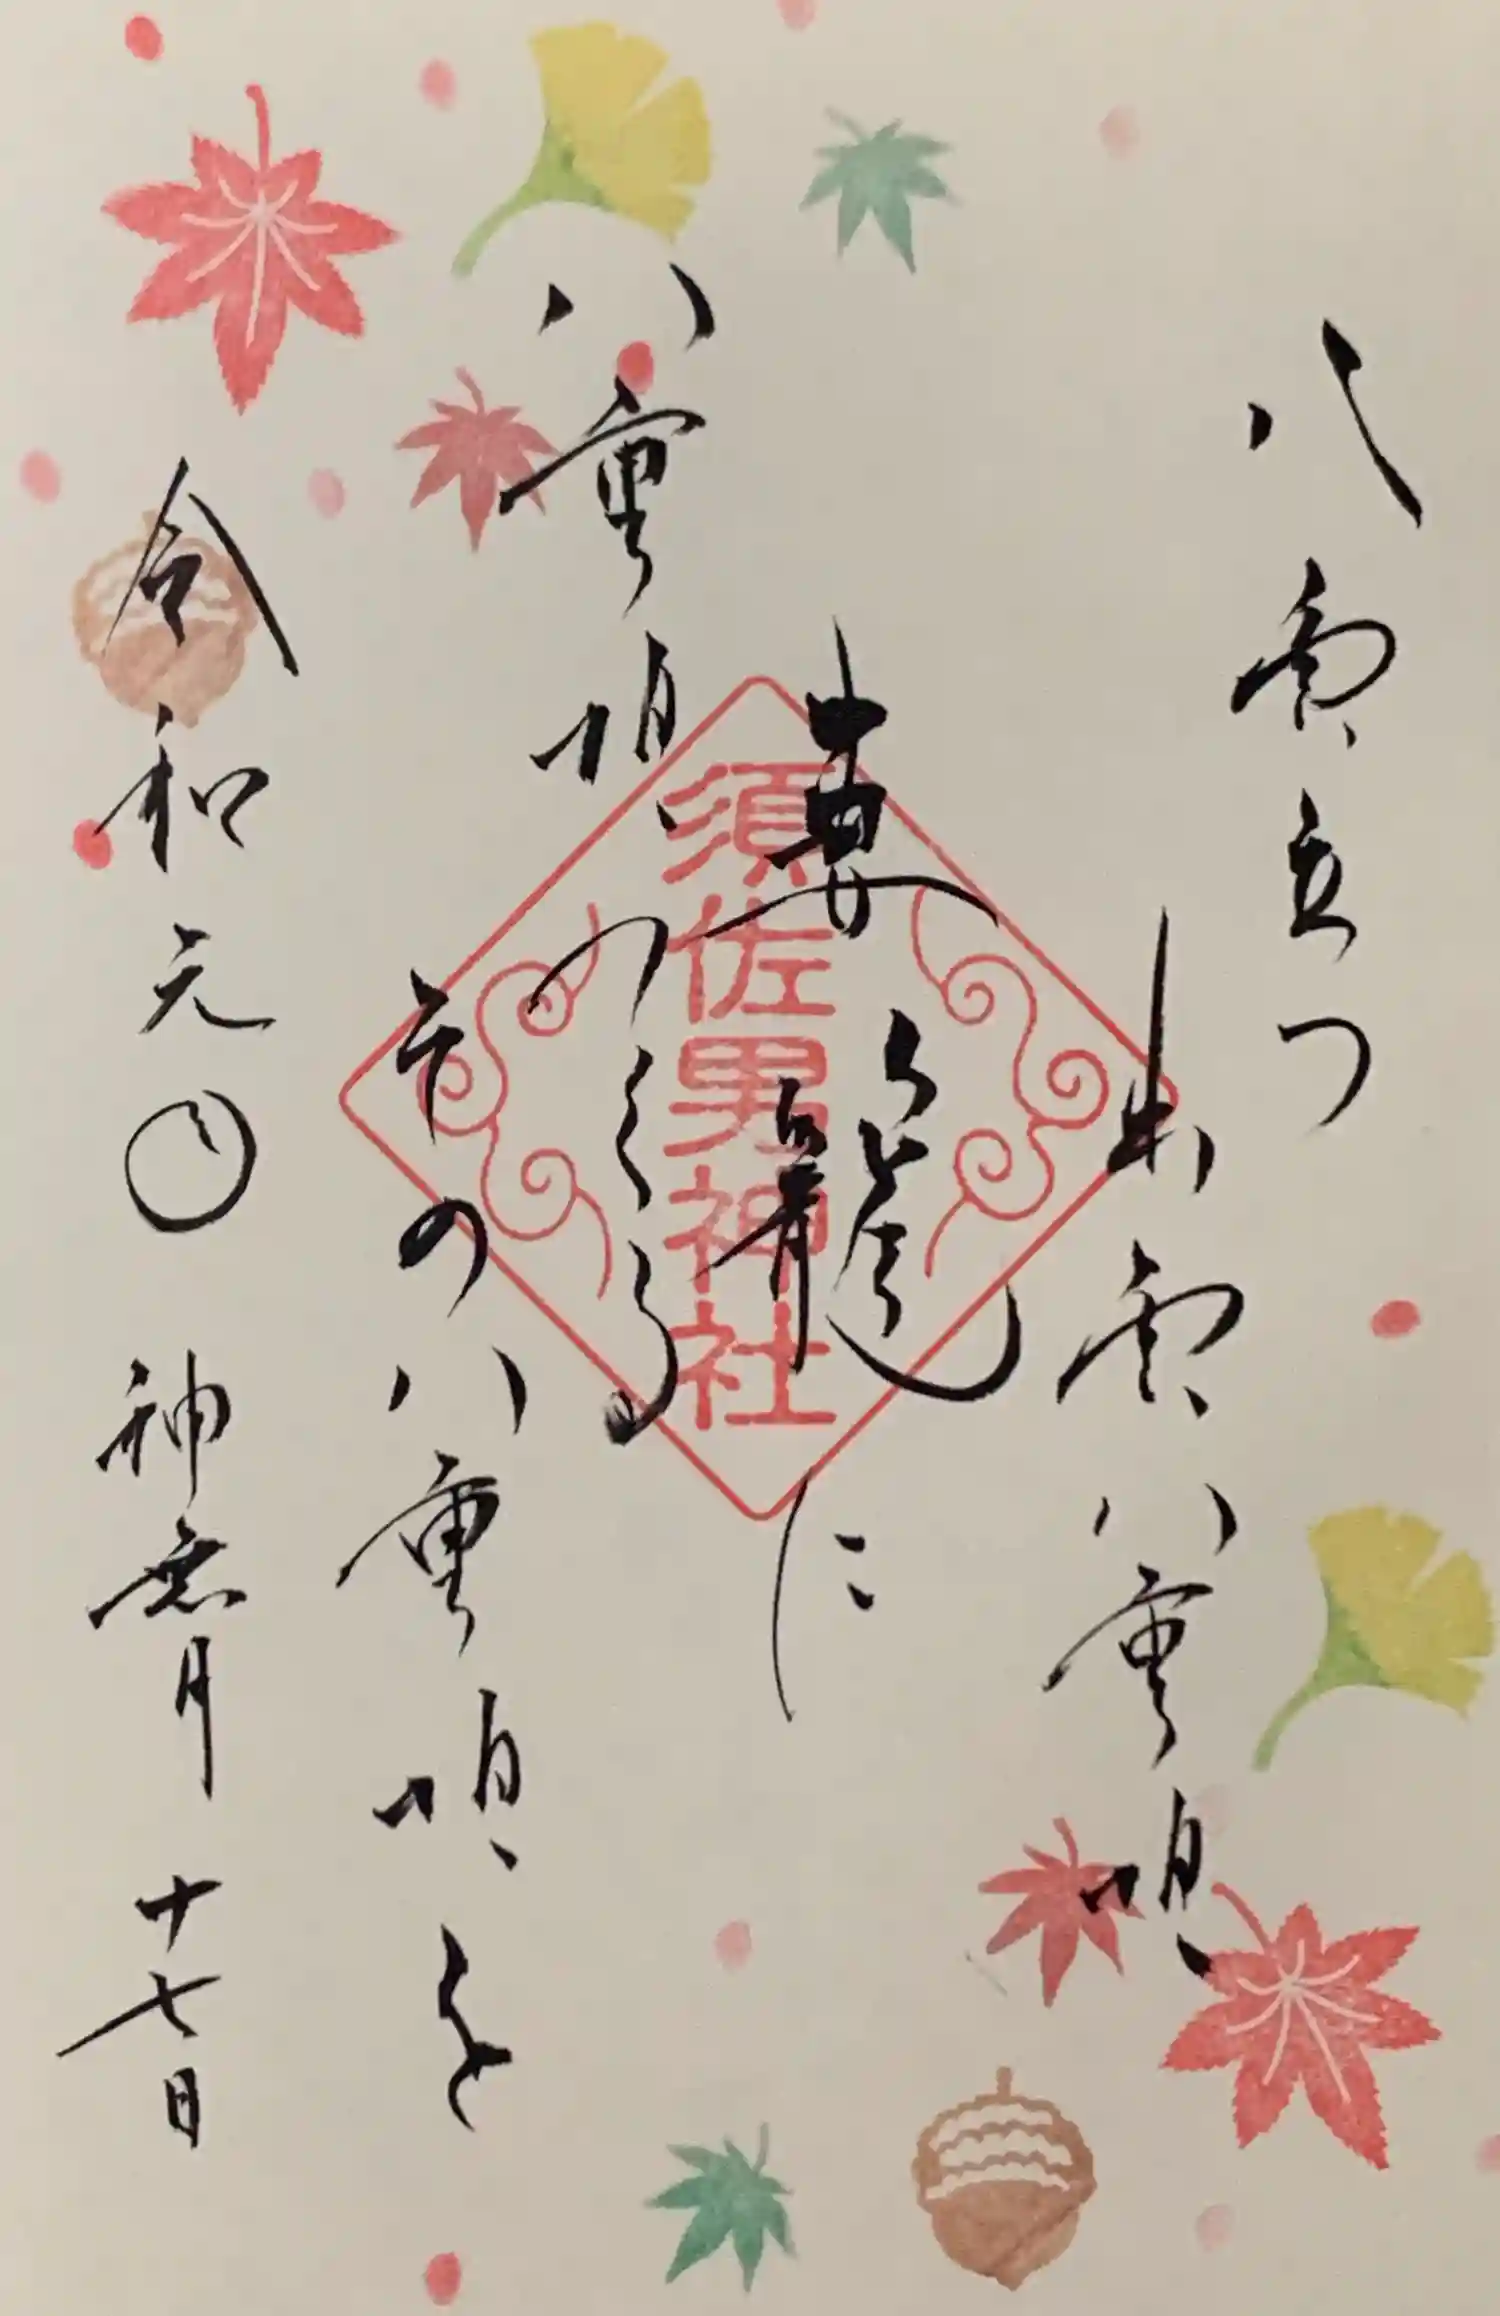 八雲立つ
出雲八重垣
妻籠に
八重垣つくる
その八重垣を
令和元年 神無月 十七日
須佐男神社